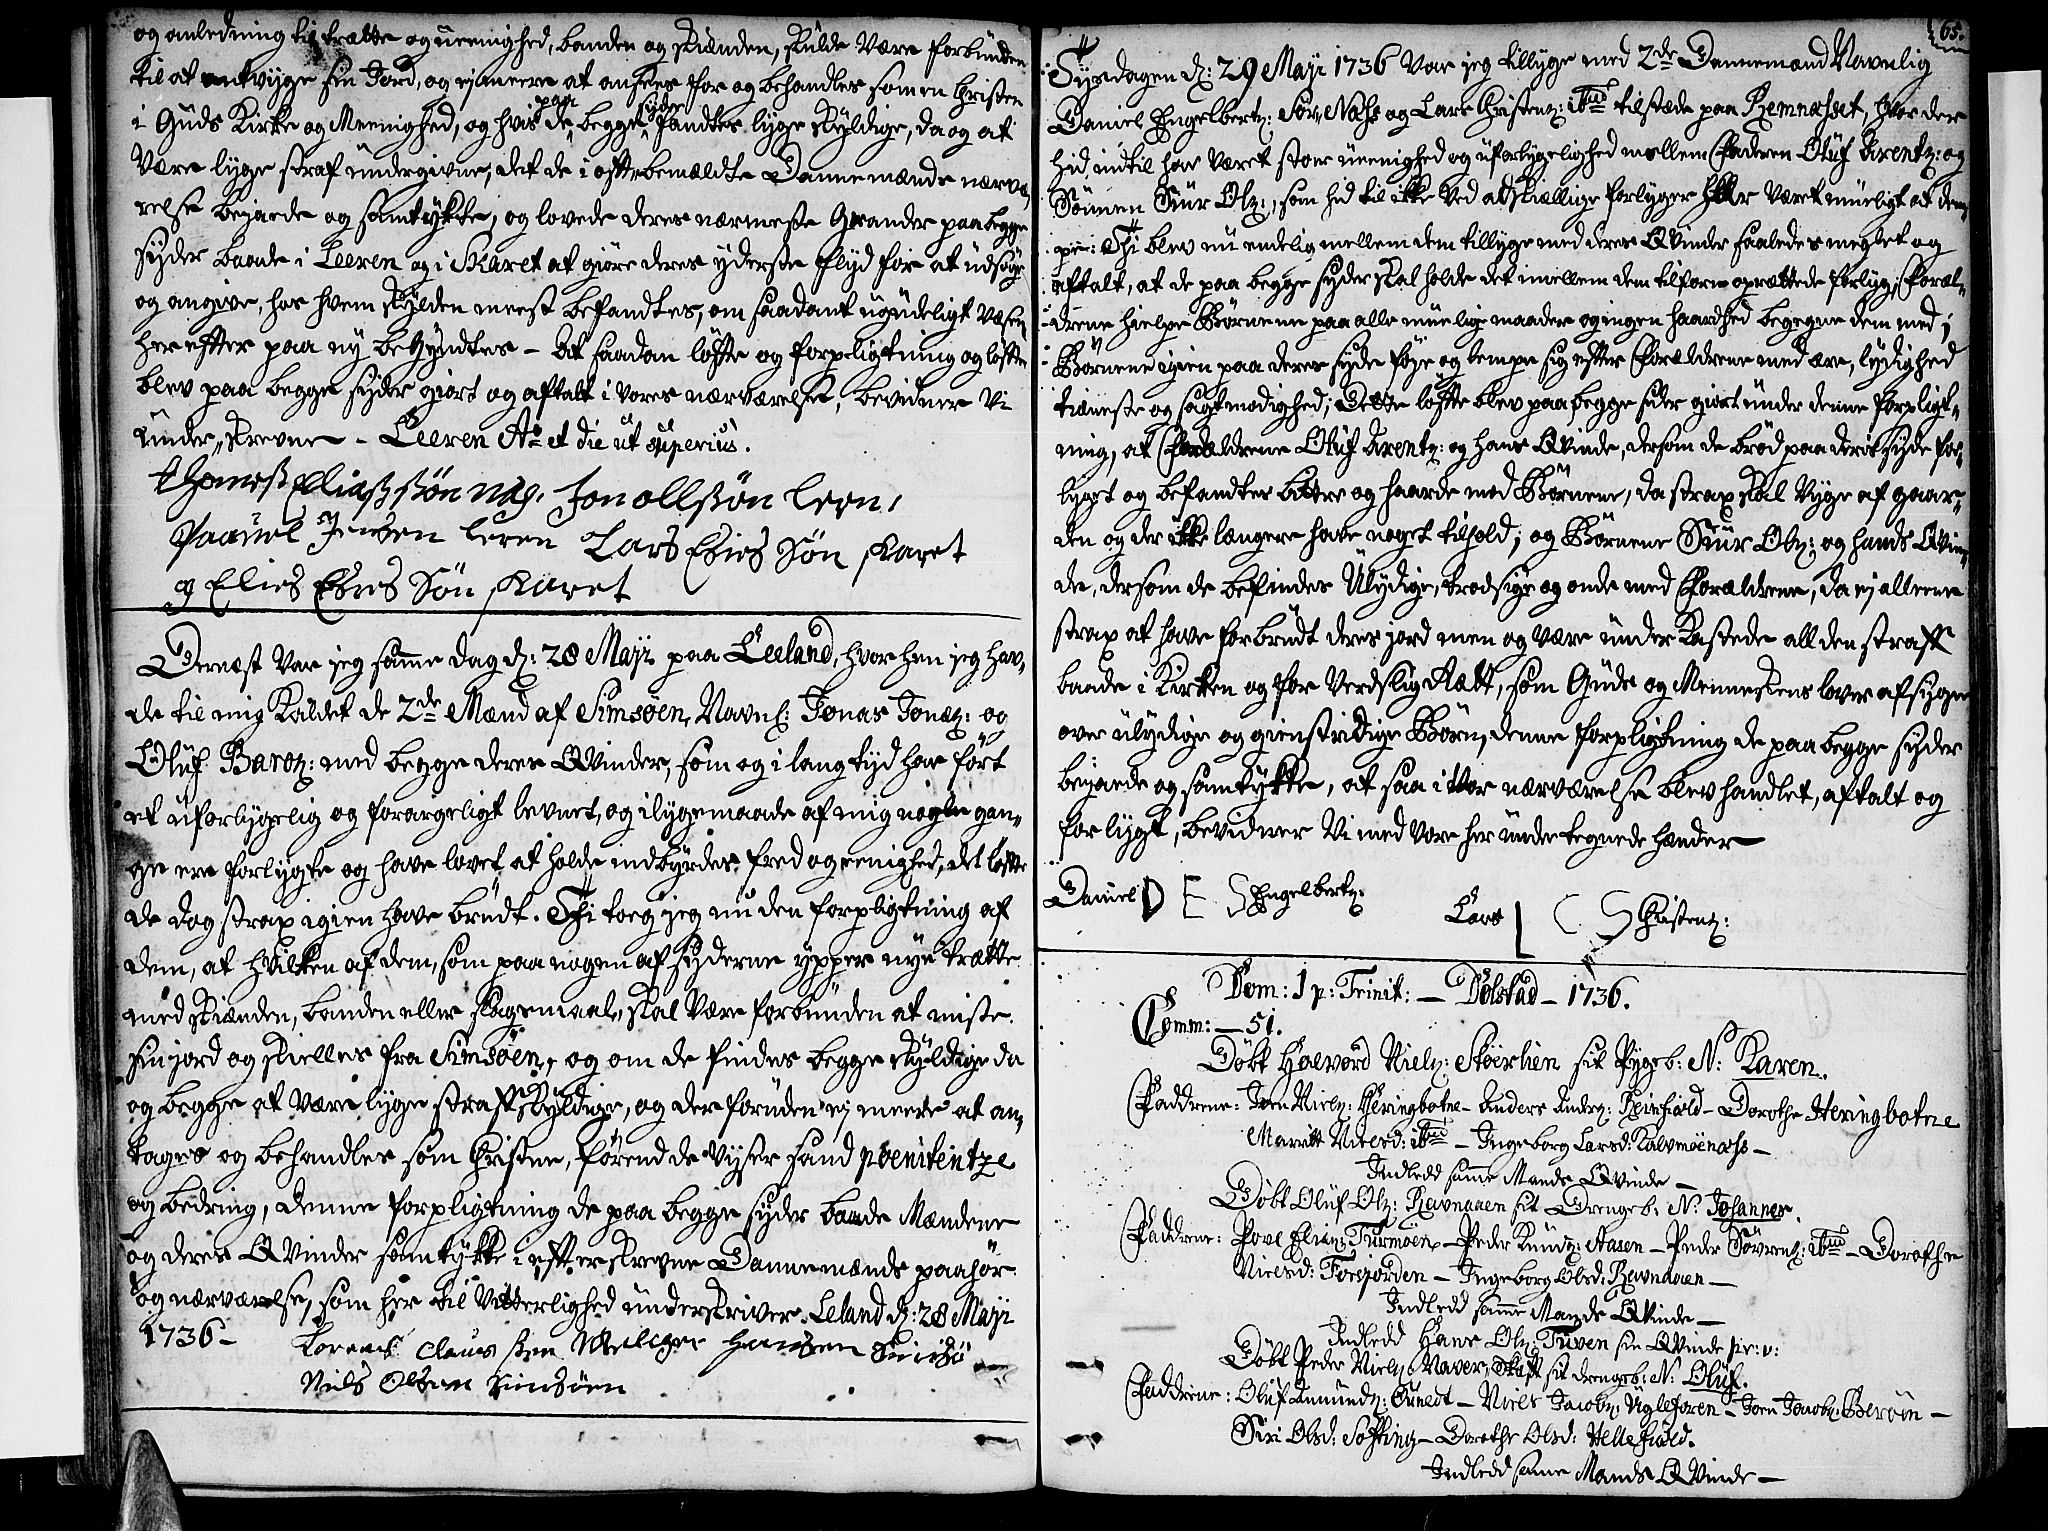 og anledning til trætte og ueenighed, banden og skiænden, skulde være forbunden
til at entvyge sin Jord, og ej meere at ansees for og behandles som en Christen
i Guds Kirke og Meenighed, og hvis de paa begge syder fandtes lyge skyldige, da og at
være lyge straf undergivne, det de i ofte bemældte Dannemænds nærvæ-
relse bejaede og samtykte, og lovede deres nærmeste Grander paa begge
syder baade i Leeren og i Skaret at giøre deres yderste flyd for at udsøge
og angive, hos hvem skylden meest befandtes, om saadant ugudeligt væsen
her effter paa ny begyndtes - At saadan løfte og forpligtning og løfte
blev paa begge syder giort og aftalt i vores nærværelse, bevidner vi
under-skrevne - Leeren Ao et die ut superius.
Thomes Elliaßßøn Jon ollßøn leen,
Paauel Jensen leren Lars Elies Søn skaret
og Elies Elies Søn skaret
Dernæst var jeg samme dag d: 28 Maji paa Leeland, hvor hen jeg hav-
de til mig kaldet de 2de Mænd af Simsøen, Navnl: Jonas Jonæz: og
Oluf Baroz: med begge deres Qvinder, som og i lang tyd har ført
et uforlygelig og forargeligt levnet, og i lygemaade af mig nogle gan-
ge ere forlygte og have lovet at holde indbyrdes fred og eenighed, det løfte
de dog strax igien have brudt. Thi toeg jeg nu den forpligtning af
dem, at hvilken af dem, som paa nogen af syderne ypper nye trætte
med skiænden, banden eller slagsmaal, skal være forbunden at miste
sin jord og skielles fra Simsøen, og om de findes begge skyldige da
og begge at være lyge straffskyldige, og der foruden ej meere at an-
tages og behandles som Christne, førend de vyser sand poenitentze
og bedring, denne forpligtning de paa begge syder baade Mændene
og deres Qvinder samtykke i effterskrevne Dannemænds paahør
og nærværelse, som her til vitterlighed underskriver. Leland d: 28 Maji
1736 - Lorents Claus sen Melcher Hansen Simsø
Niels Olsen Simsøen
65.
Tysdagen d: 29 Maji 1736 var jeg tillyge med 2de Dannemænd Navnlig
Daniel Engelbertz: Sør, Næhs og Lars Christenz: ibid tilstæde paa Remnæsset, hvor der
hid indtil har været stoer ueenighed og uforlygelighed mellem Faderen Oluf Arentz: og
Sønnen Siur Olz:, som hid til ikke ved adskællige forlyger har været mueligt at dem-
pe: Thi blev nu endelig mellem dem tillyge med deres Qvinder saaledes megled og
aftalt, at de paa begge syder skal holde det imellem dem tilforn oprættede forlyg, Foræl-
drene hielpe Børnene paa alle muelig maader og ingen haardhed begegne dem med;
Børnene igien paa deres syde føye og tempe sig efter Forældrene med ære, lydighed
tieneste og sagtmodighed; Dette løfte blev paa begge sider giort under denne forpligt-
ning, at Forældrene Oluf Arentz: og hans Qvinde, dersom de brød paa deres syde for-
lyget og befandtes bittre og haarde mod Børnene, da strax skal vyge af gaar-
den og der ikke længere have noget tilhold; og Børnene Siur Olz: og hands Qvin-
de, dersom de befindes Ulydige, trodsige og onde med Forældrene, da ej alleene
strax at have forbrudt deres jord men og være under kastede all den straff
baade i Kirken og for Verdslig Rætt, som Guds og Menneskens lover afsyger
over ulydige og gienstridige Børn, denne forpligtning de paa begge syder
bejaede og samtykke, at saa i vor nærværelse blev handlet, aftalt og
forlygt, bevidner vi med vore her under tegnede hænder
Daniel D E S Engelbertz: Lars L C S Christenz:
Dom: 1 p: Trinit: - Dølstad - 1736.
Comm: - 51.
Døbt Halvord Nielz: Støerlien sit Pygeb: N: Karen.
Faddrene: Joen Nielz: Heringbotne - Anders Andrz: Reinfiæld - Dorothe Heringbotne
Maritt Nielsd: ibid - Ingeborg Larsd: Kalvmoenæhs -
Indledd samme Mands Qvinde -
Døbt Oluf Olz: Ravnaaen sit Drengeb: N: Johannes.
Faddrene: Povel Eliæz: Turmoen - Peder Knudz: Aasen - Peder Sövrenz: ibid - Dorothe
Nielsd: Forsjorden - Ingeborg Olsd: Ravnaaen -
Indledd samme Mands Qvinde -
Indledd Hans Olz: Tuven sin Qvinde pr: v:
Døbt Peder Nielz: Naver, Skaft sit drengeb: N: Oluf.
Faddrene: Oluf Amundz: Ørnedt - Niels Jacobz: Uglefoeren - Joen Jacobz: Bersøen -
Siri Olsd: Søfting - Dorothe Olsd: Hellefiæld.
Indledd same Mands Qvinde -